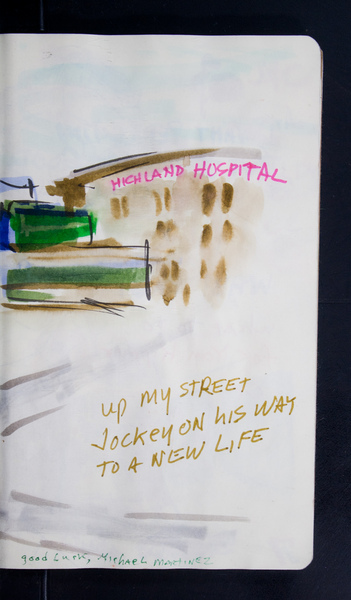 HIGHLAND HOSPITAL
up my STREET
Jockey ON his WAY
TO A NEW LIFE
good Luck, Michael MARTINEZ